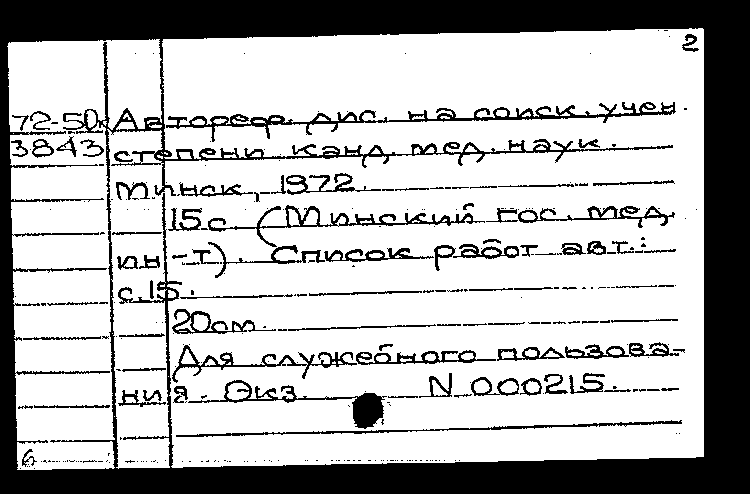 2
72-50к Автореф. дис. на соиск. учен.
3843 степени канд. мед. наук.
Минск, 1972.
15с. (Минский гос. мед.
ин-т). Список работ авт.:
с. 15.
20см.
Для служебного пользова-
ния. Экз. N 000215.
6